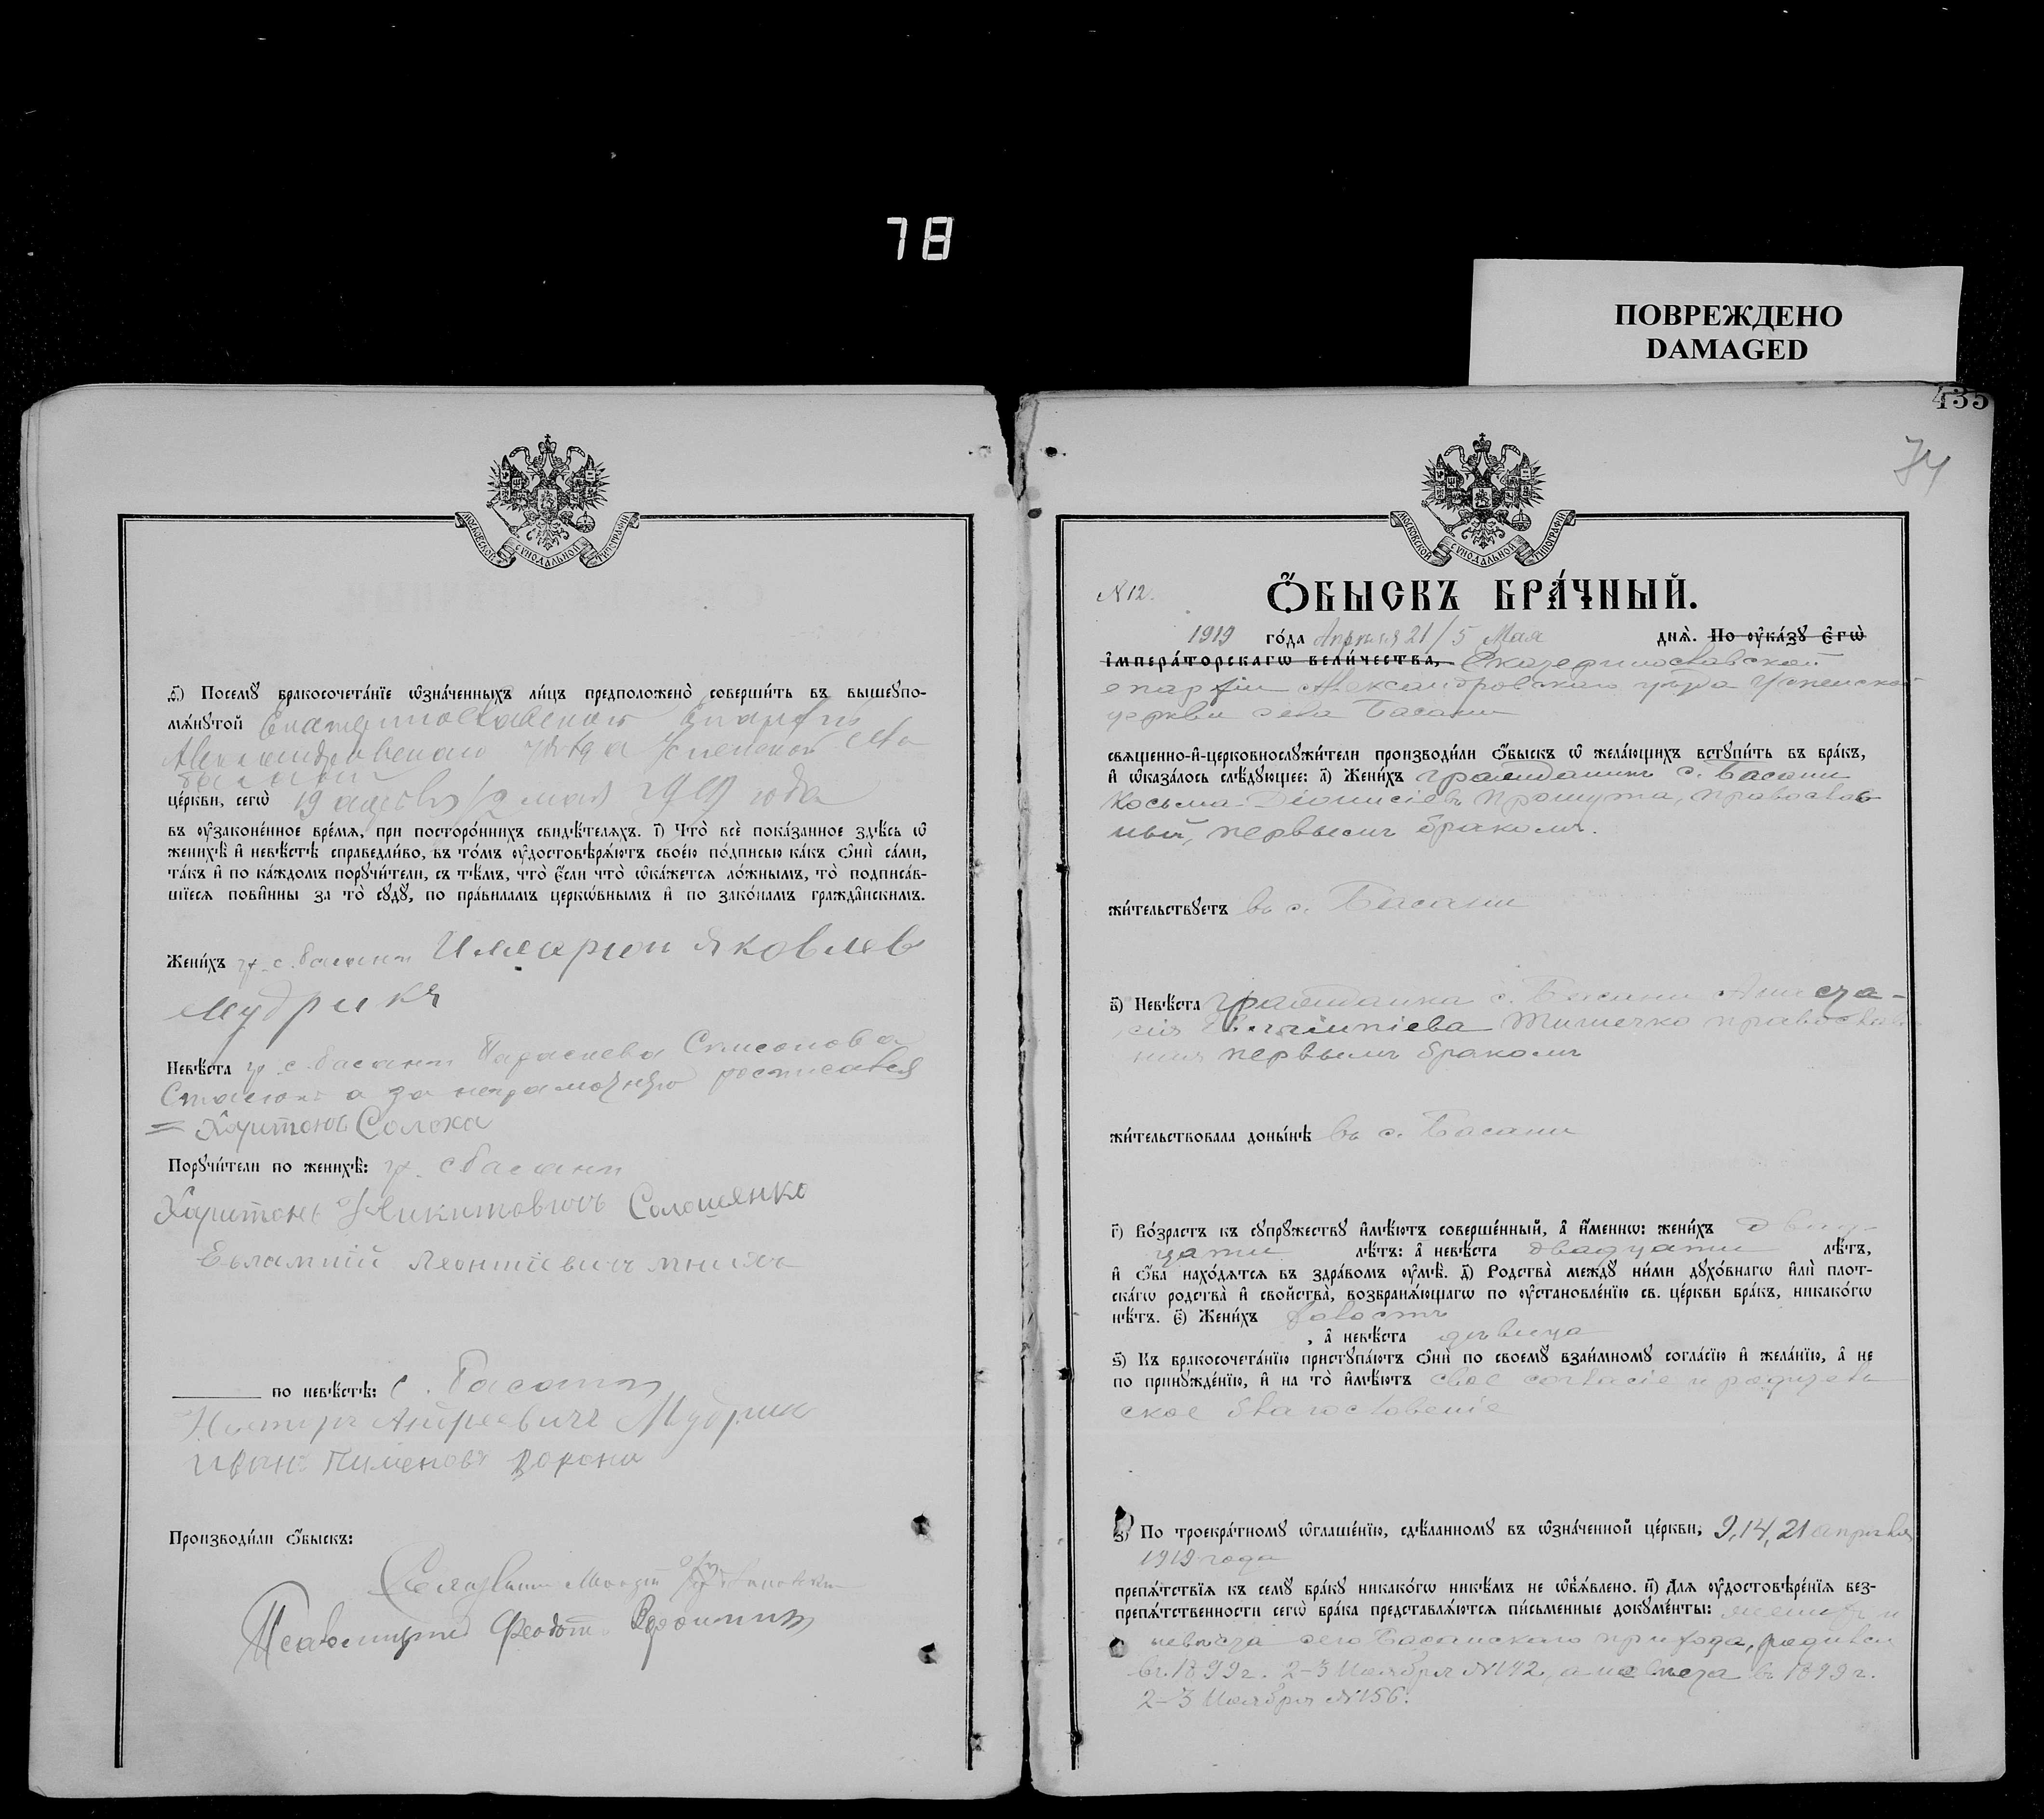 78
ПОВРЕЖДЕНО
DAMAGED
МОСКОВСКОЙ СѴНОДАЛЬНОЙ ТИПОГРАФІИ
ѳ҃) Посемꙋ бракосочета́нїе ѡ҆зна́ченныхъ ли́цъ предположено̀ соверши́ть въ вышеꙋпо-
мѧ́нꙋтой Екатеринославской Епархіи
Александровскаго уѣзда Успенской села
Басани
це́ркви, сегѡ̀ 19 апрѣля /2 мая 1919 года
въ ᲂу҆законе́нное вре́мѧ, при посторо́ннихъ свидѣ́телѧхъ. і҃) Что̀ всѐ пока́занное здѣ́сь ѡ҆
женихѣ̀ и҆ невѣ́стѣ справедли́во, въ то́мъ ᲂу҆достовѣрѧ́ютъ свое́ю по́дписью ка́къ ѻ҆нѝ са́ми,
та́къ и҆ по ка́ждомъ порꙋчи́тели, съ тѣ́мъ, что̀ є҆́сли что̀ ѡ҆ка́жется ло́жнымъ, то̀ подписа́в-
шїесѧ пови́нны за то̀ сꙋдꙋ̀, по пра́виламъ церкѡ́внымъ и҆ по зако́намъ гражда́нскимъ.
Жени́хъ гр. с. Басани Илларіон Яковлев
Мудрикъ
Невѣ́ста гр. с. Басани Параскева Симеонова
а за неграмотную росписался
= Харитонъ Солоха
Порꙋчи́тели по женихѣ̀: гр. с Басани
Харитонъ Никитовичъ Солошенко
Евлампій Леонтіевичъ
по невѣ́стѣ: с. Басани
Нестеръ Андреевичъ Мудрик
Иванъ Пименовъ Ворона
Производи́ли ѻ҆́быскъ:
Священникъ
Псаломщикъ Феодотъ
435
74
МОСКОВСКОЙ СѴНОДАЛЬНОЙ ТИПОГРАФІИ
N 12.
Ѻ҆́БЫСКЪ БРА́ЧНЫЙ.
1919 го́да Апрѣля 21/5 Мая днѧ̀. По ᲂу҆ка́зꙋ є҆гѡ̀
і҆мпера́торскагѡ вели́чества, Екатеринославской
епархіи Александровскаго уѣзда Успенской
церкви села Басани
свѧще́нно-и҆-церковнослꙋжи́тели производи́ли ѻ҆́быскъ ѡ҆ жела́ющихъ встꙋпи́ть въ бра́къ,
и҆ ѡ҆каза́лось слѣ́дꙋющее: а҃) Жени́хъ гражданинъ с. Басани
Косьма Діонисіевъ Прошута, православ
ный, первымъ бракомъ.
жи́тельствꙋетъ въ с. Басани
в҃) Невѣ́ста гражданка с. Басани Анаста-
сія православ
ная первымъ бракомъ
жи́тельствовала доны́нѣ въ с. Басани
г҃) Во́зрастъ къ сꙋпрꙋ́жествꙋ и҆мѣ́ютъ соверше́нный, а҆ и҆́меннѡ: жени́хъ двад-
цати лѣ́тъ: а҆ невѣ́ста двадцати лѣ́тъ,
и҆ ѻ҆́ба нахо́дѧтсѧ въ здра́вомъ ᲂу҆мѣ̀. д҃) Родства̀ междꙋ̀ ни́ми дꙋхо́внагѡ и҆лѝ плот-
ска́гѡ родства̀ и҆ сво́йства̀, возбранѧ́ющагѡ по ᲂу҆становле́нїю св. це́ркви бра́къ, никако́гѡ
нѣ́тъ. є҃) Жени́хъ холостъ
, а҆ невѣ́ста дѣвица
ѕ҃) Къ бракосочета́нїю пристꙋпа́ютъ ѻ҆нѝ по своемꙋ̀ взаи́мномꙋ согла́сїю и҆ жела́нїю, а҆ не
по принꙋжде́нїю, и҆ на то̀ и҆мѣ́ютъ свое согласіе и родитель
ское благословеніе
з҃) По троекра́тномꙋ ѡ҆глаше́нїю, сдѣ́ланномꙋ въ ѡ҆зна́ченной це́ркви, 9, 14, 21 апрѣля
1919 года
препѧ́тствїѧ къ семꙋ̀ бра́кꙋ никако́гѡ никѣ́мъ не ѡ҆б̾ѧ́влено. и҃) Длѧ ᲂу҆достовѣре́нїѧ без-
препѧ́тственности сегѡ̀ бра́ка представлѧ́ютсѧ пи́сьменные докꙋме́нты: женихъ и
невѣста сего Басанскаго прихода, родился
въ 1899 г. 2-3 Ноября N 142, а невѣста въ 1899 г.
2-3 Ноября N 156.